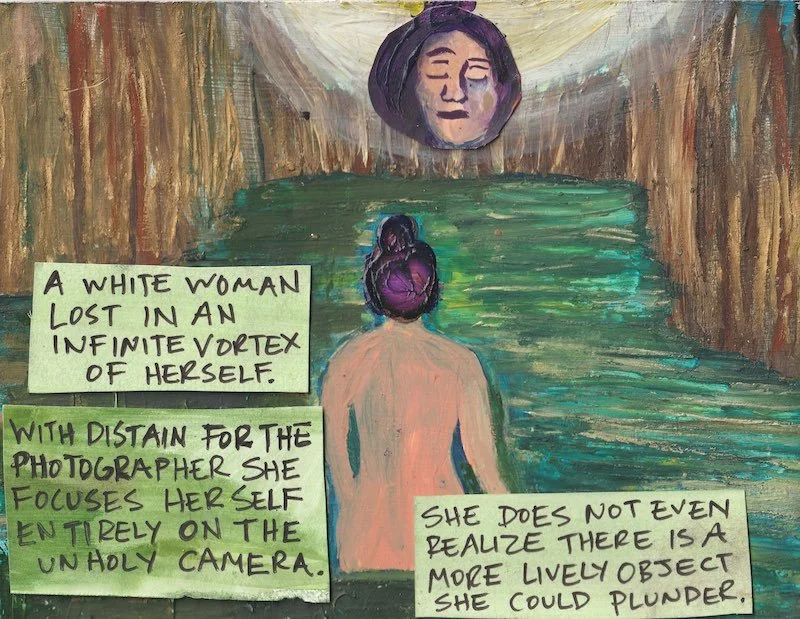 A WHITE WOMAN
LOST IN AN
INFINITE VORTEX
OF HERSELF.
WITH DISTAIN FOR THE
PHOTOGRAPHER SHE
FOCUSES HERSELF
ENTIRELY ON THE
UNHOLY CAMERA.
SHE DOES NOT EVEN
REALIZE THERE IS A
MORE LIVELY OBJECT
SHE COULD PLUNDER.